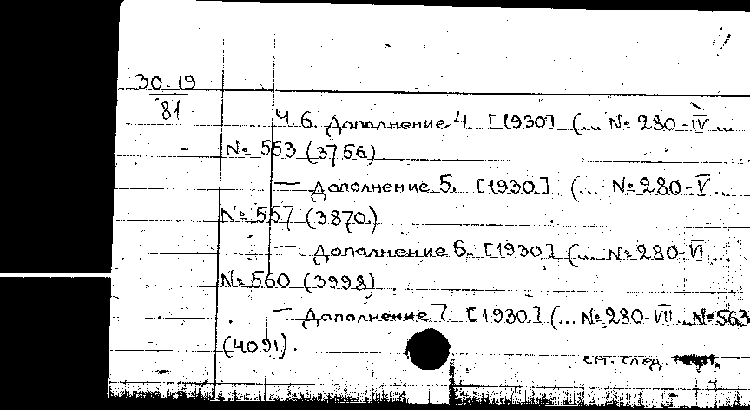 30-19
81
Ч. 6. Дополнение 4. [1930] (... № 280-IV ...
№ 553 (3756)
— Дополнение 5. [1930] (... № 280-V ...
№ 557 (3870)
— Дополнение 6. [1930] (... № 280-VI ...
№ 560 (3998)
— Дополнение 7. [1930] (... № 280-VII ... № 563
(4091).
см. след.